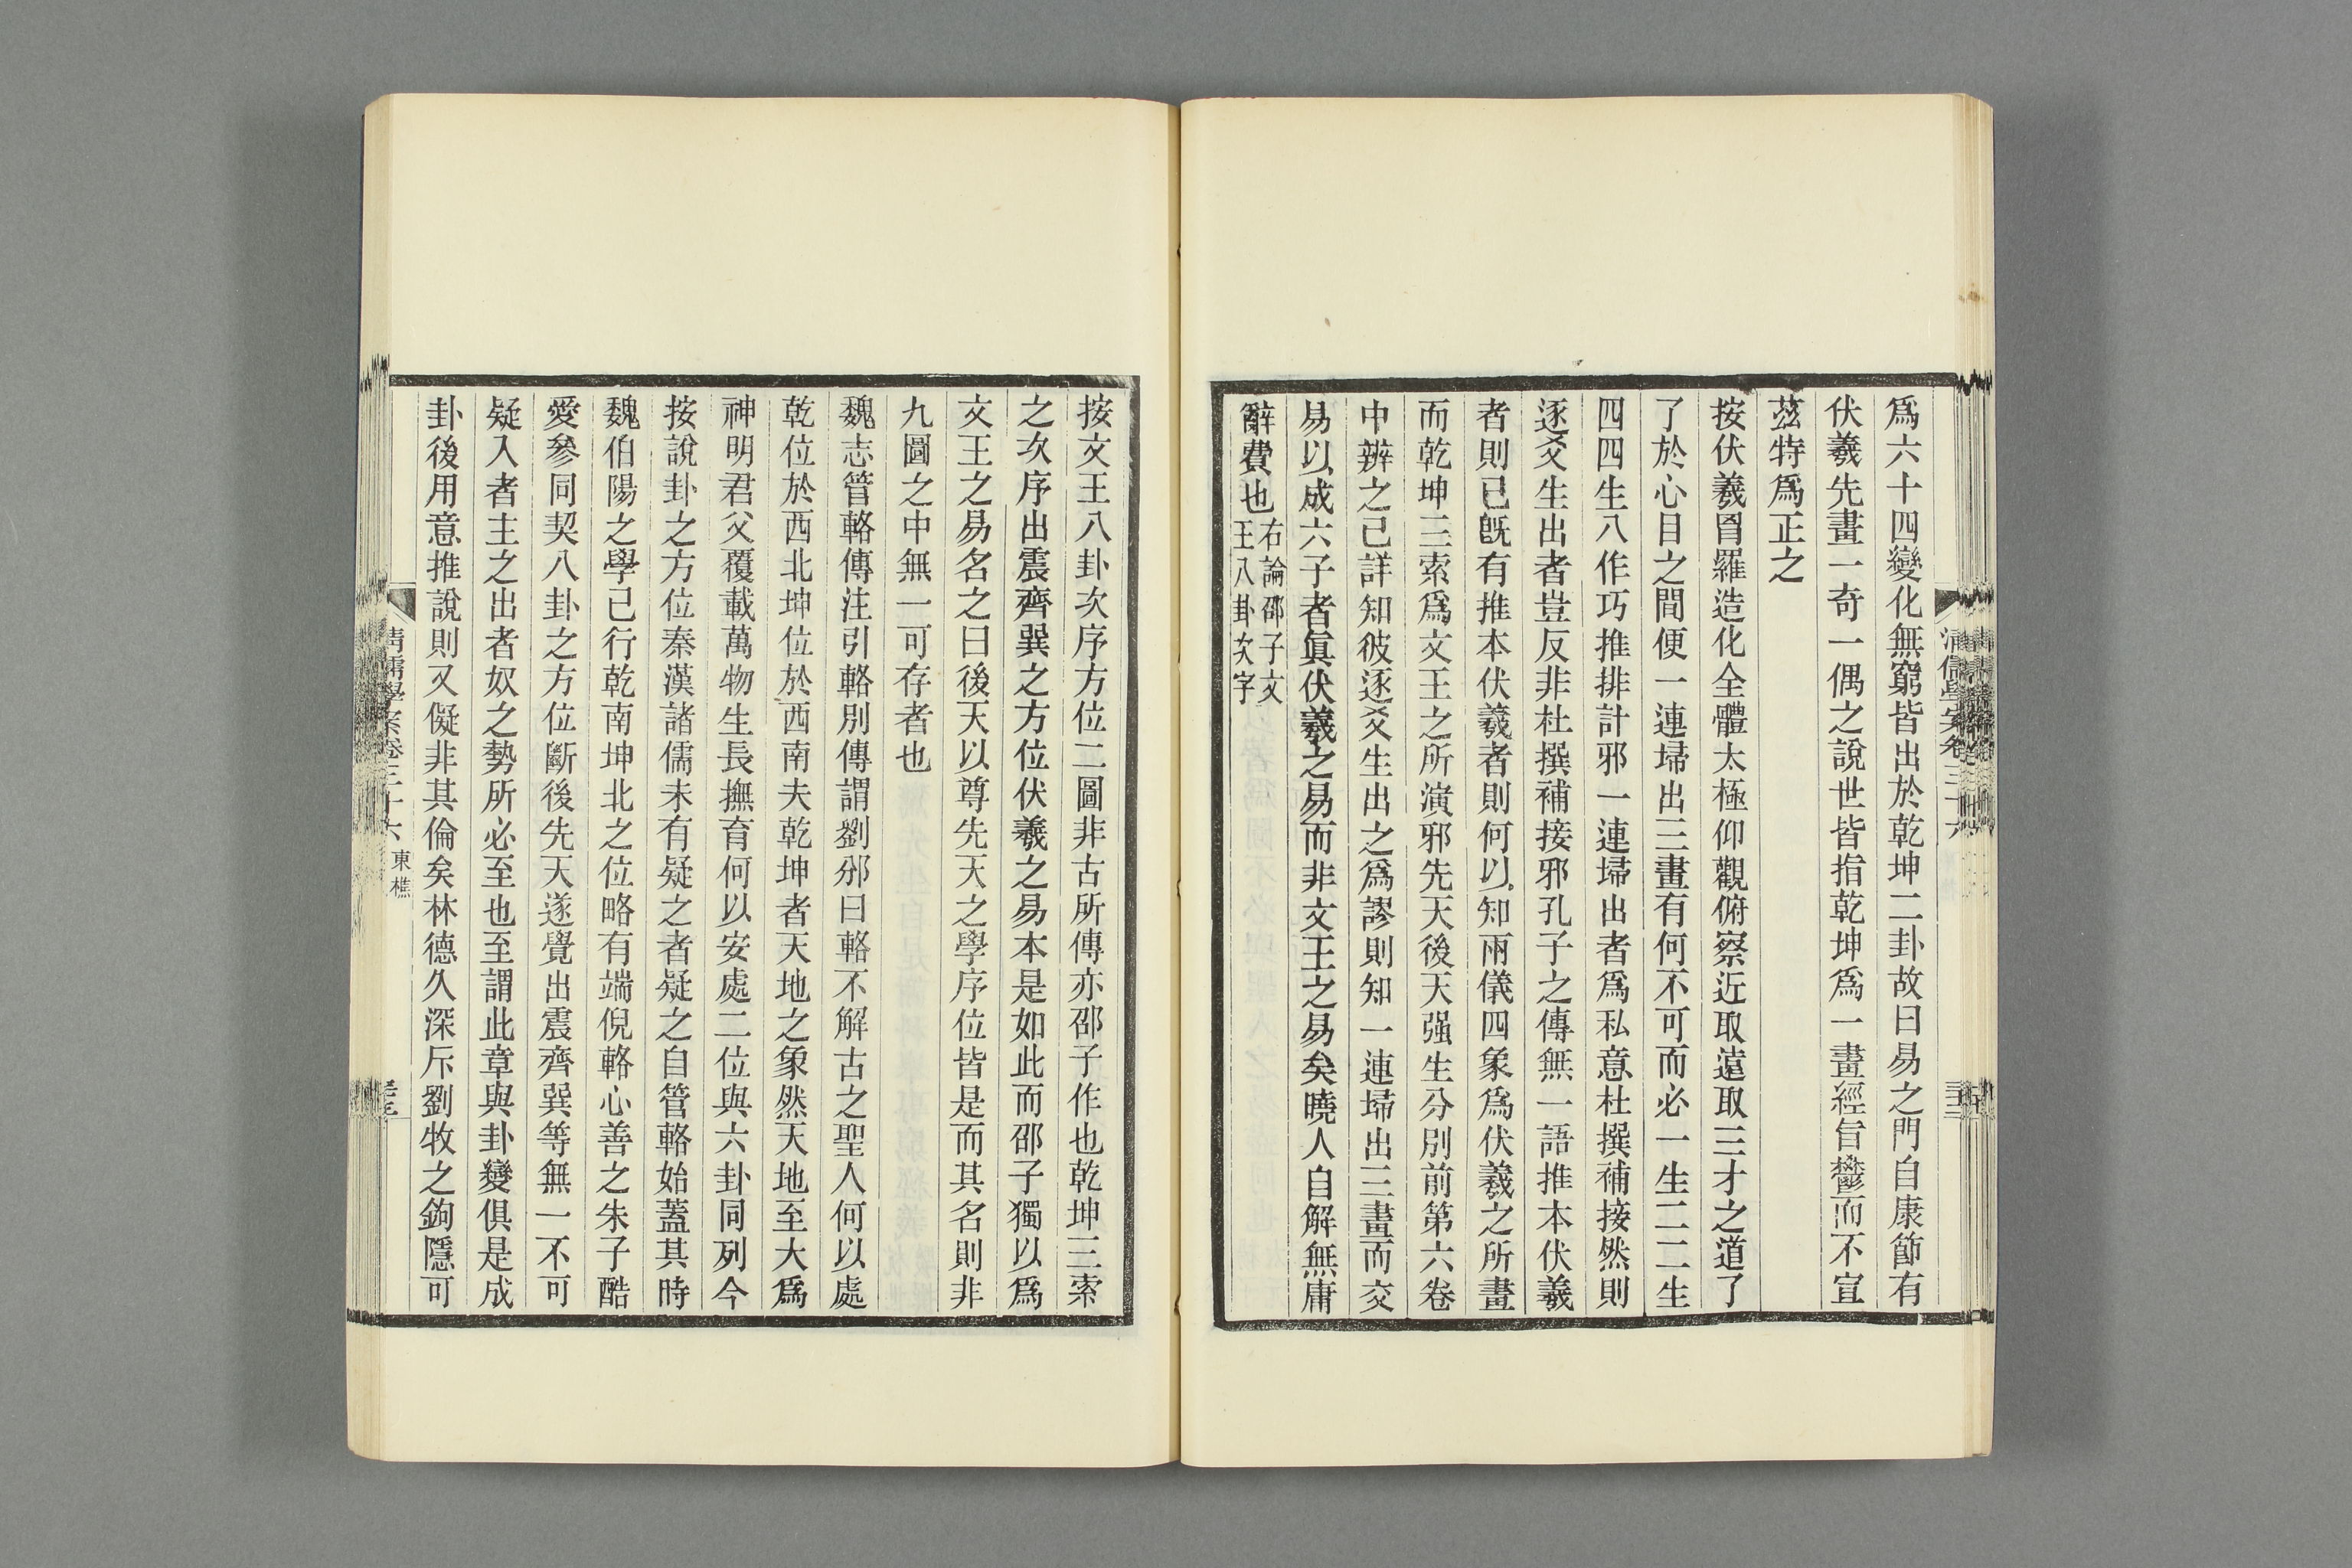 爲六十四變化無窮皆出於乾坤二卦故曰易之門自康節有
伏羲先畫一奇一偶之說世皆指乾坤爲一畫經旨鬱而不宣
茲特爲正之
按伏羲胷羅造化全體太極仰觀俯察近取遠取三才之道了
了於心目之間便一連埽出三畫有何不可而必一生二二生
四四生八作巧推排計邪一連埽出者爲私意杜撰補接然則
逐爻生出者豈反非杜撰補接邪孔子之傳無一語推本伏羲
者則已旣有推本伏羲者則何以知兩儀四象爲伏羲之所畫
而乾坤三索爲文王之所演邪先天後天强生分別前第六卷
中辨之已詳知彼逐爻生出之爲謬則知一連埽出三畫而交
易以成六子者眞伏羲之易而非文王之易矣曉人自解無庸
辭費也右論邵子文
王八卦次字
清儒學案卷三十六
按文王八卦次序方位二圖非古所傳亦邵子作也乾坤三索
之次序出震齊巽之方位伏羲之易本是如此而邵子獨以爲
文王之易名之曰後天以尊先天之學序位皆是而其名則非
九圖之中無一可存者也
魏志管輅傳注引輅別傳謂劉邠曰輅不解古之聖人何以處
乾位於西北坤位於西南夫乾坤者天地之象然天地至大爲
神明君父覆載萬物生長撫育何以安處二位與六卦同列今
按說卦之方位秦漢諸儒未有疑之者疑之自管輅始蓋其時
魏伯陽之學已行乾南坤北之位略有端倪輅心善之朱子酷
愛參同契八卦之方位斷後先天遂覺出震齊巽等無一不可
疑入者主之出者奴之勢所必至也至謂此章與卦變俱是成
卦後用意推說則又儗非其倫矣林德久深斥劉牧之鉤隱可
清儒學案卷三十六 東樵